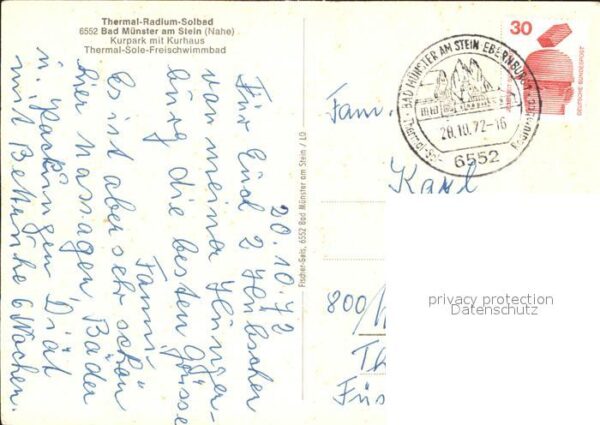 Thermal-Radium-Solbad
6552 Bad Münster am Stein (Nahe)
Kurpark mit Kurhaus
Thermal-Sole-Freischwimmbad
20.10.72
Für Euch 2 Hübscher
von meina Hunger-
burg die besten Grüsse
Fanni
Es ist aber sehr schön
hier Massagen Bäder
u. Packungen Diät
mit Bettruhe 6 Wochen.
Fischer-Gels, 6552 Bad Münster am Stein / LO
30
DEUTSCHE BUNDESPOST
BAD MÜNSTER AM STEIN EBERNBURG
20.10.72-16
6552
Fam.
Karl
800/
Th
Füs
privacy protection
Datenschutz